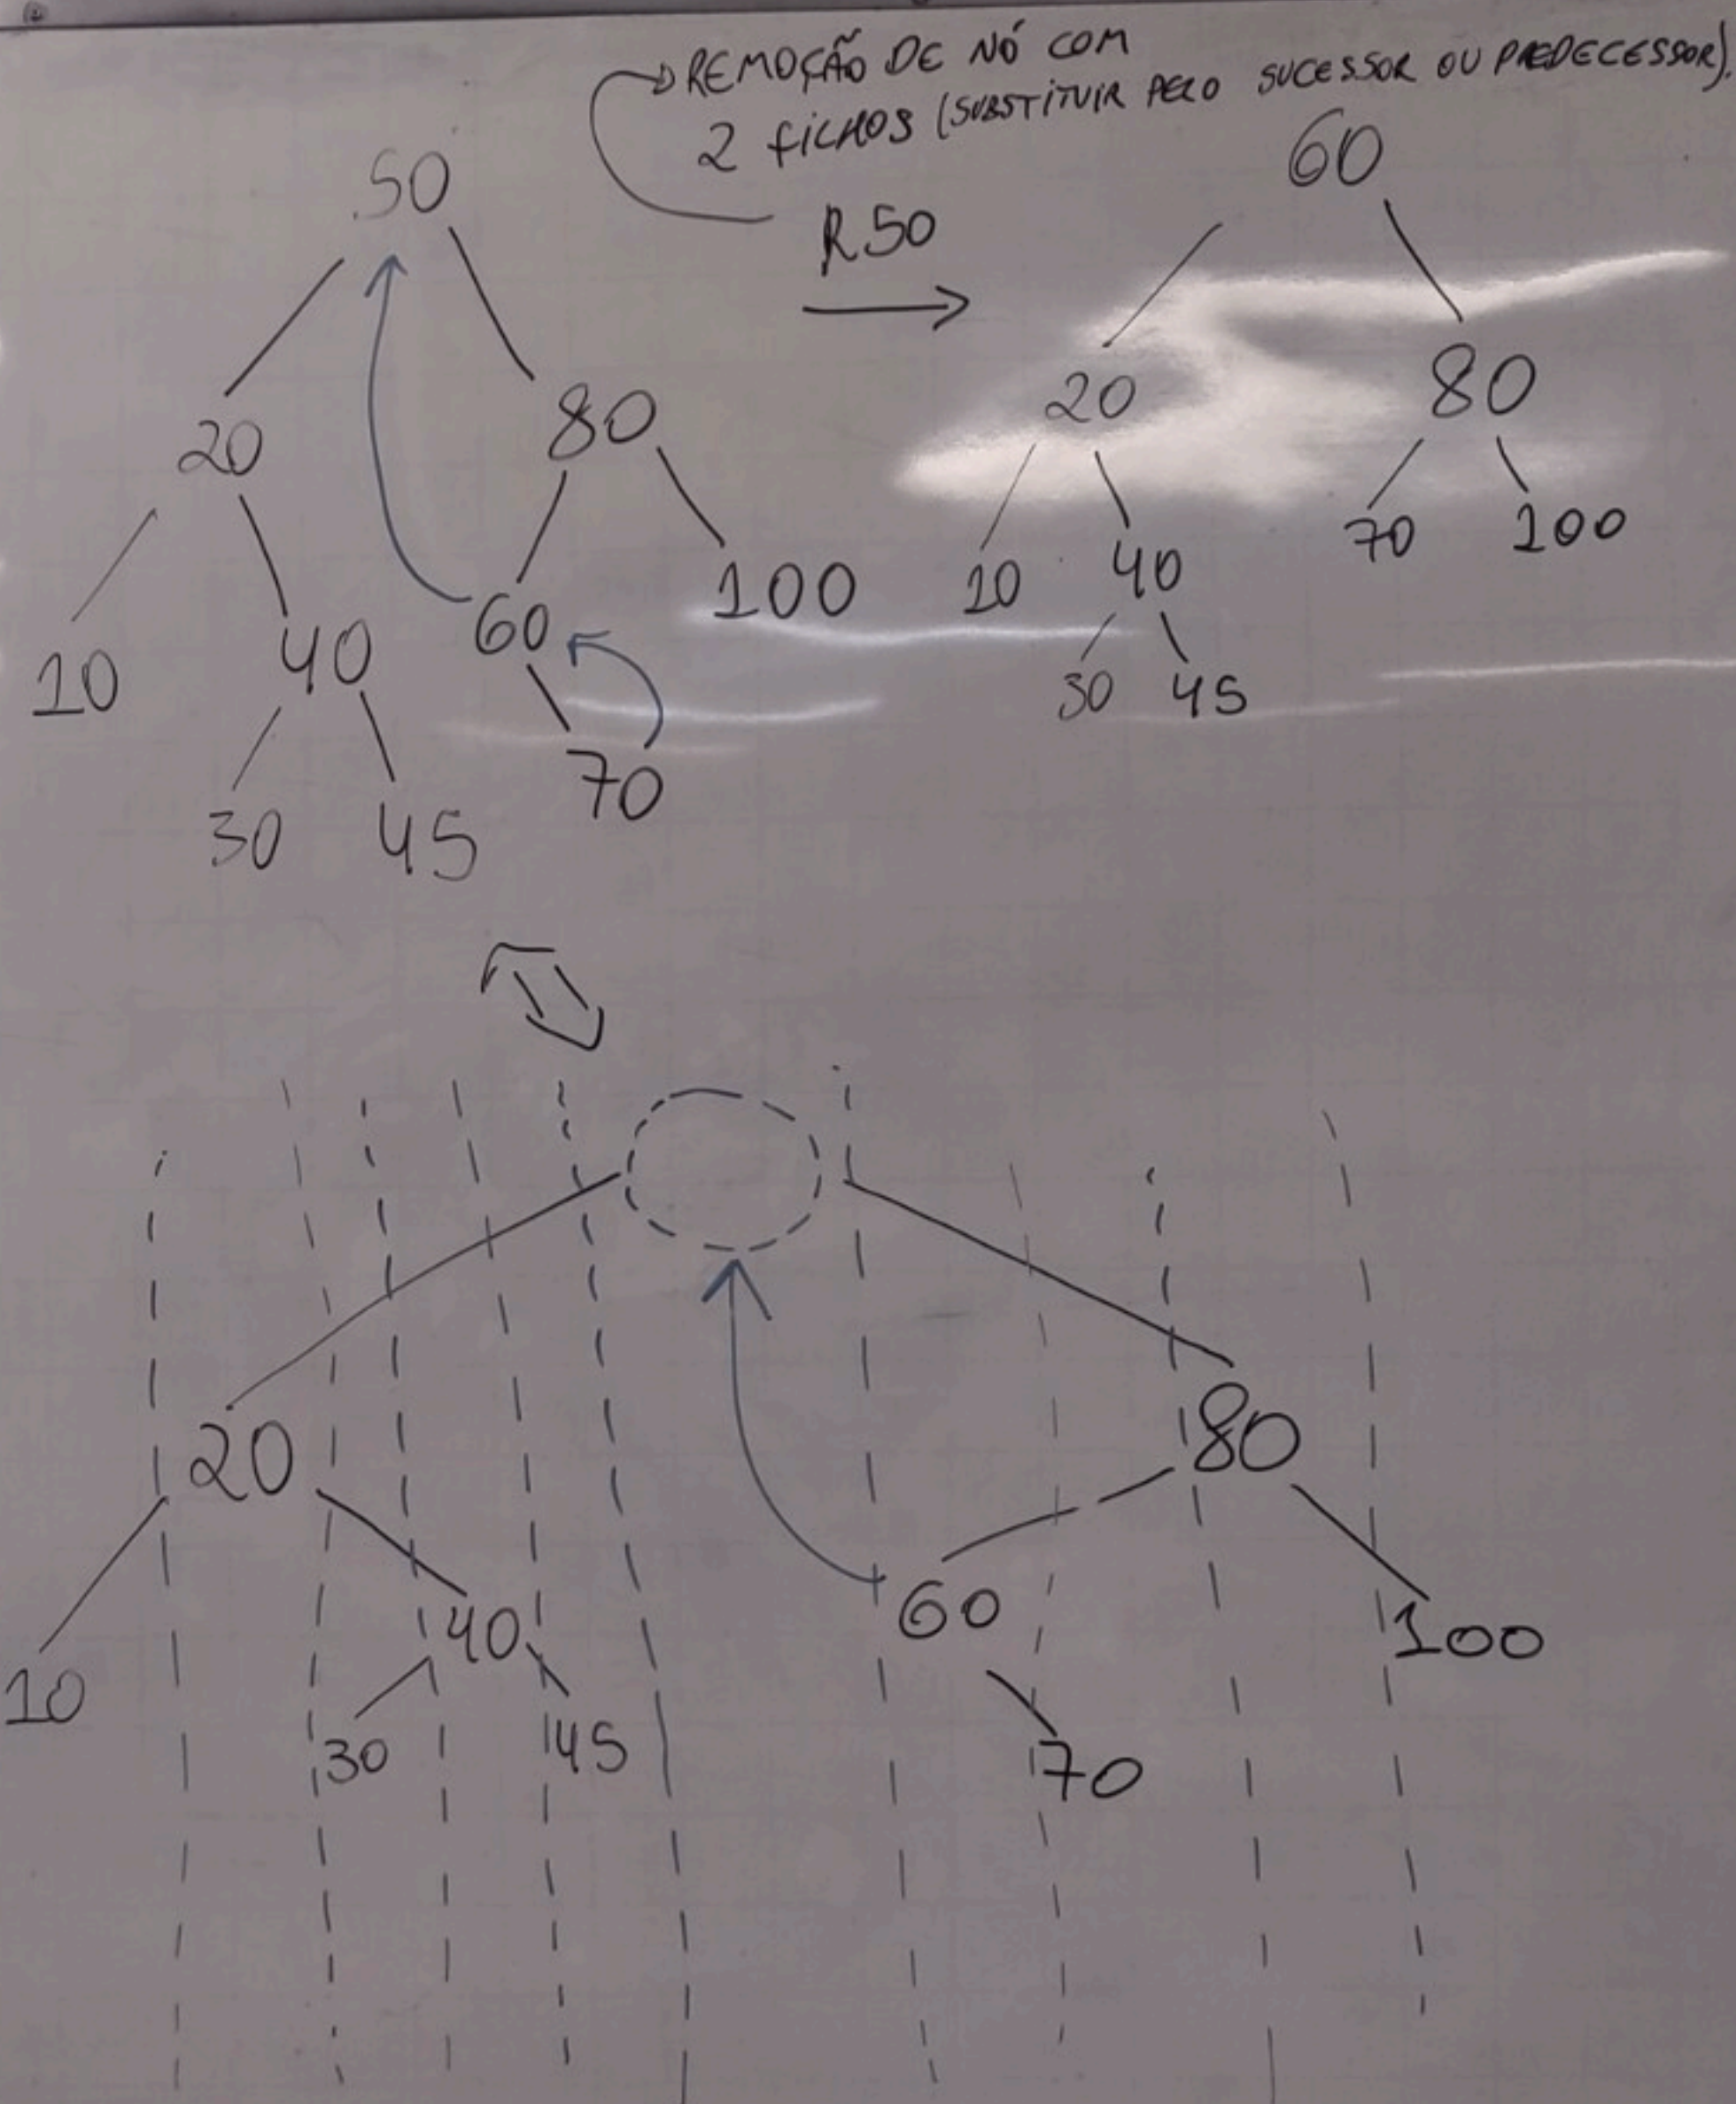 REMOÇÃO DE NÓ COM
2 FILHOS (SUBSTITUIR PELO SUCESSOR OU PREDECESSOR).
R50
50
20 80
10 40 60 100
30 45 70
60
20 80
10 40 70 100
30 45
20 80
10 40 60 100
30 45 70